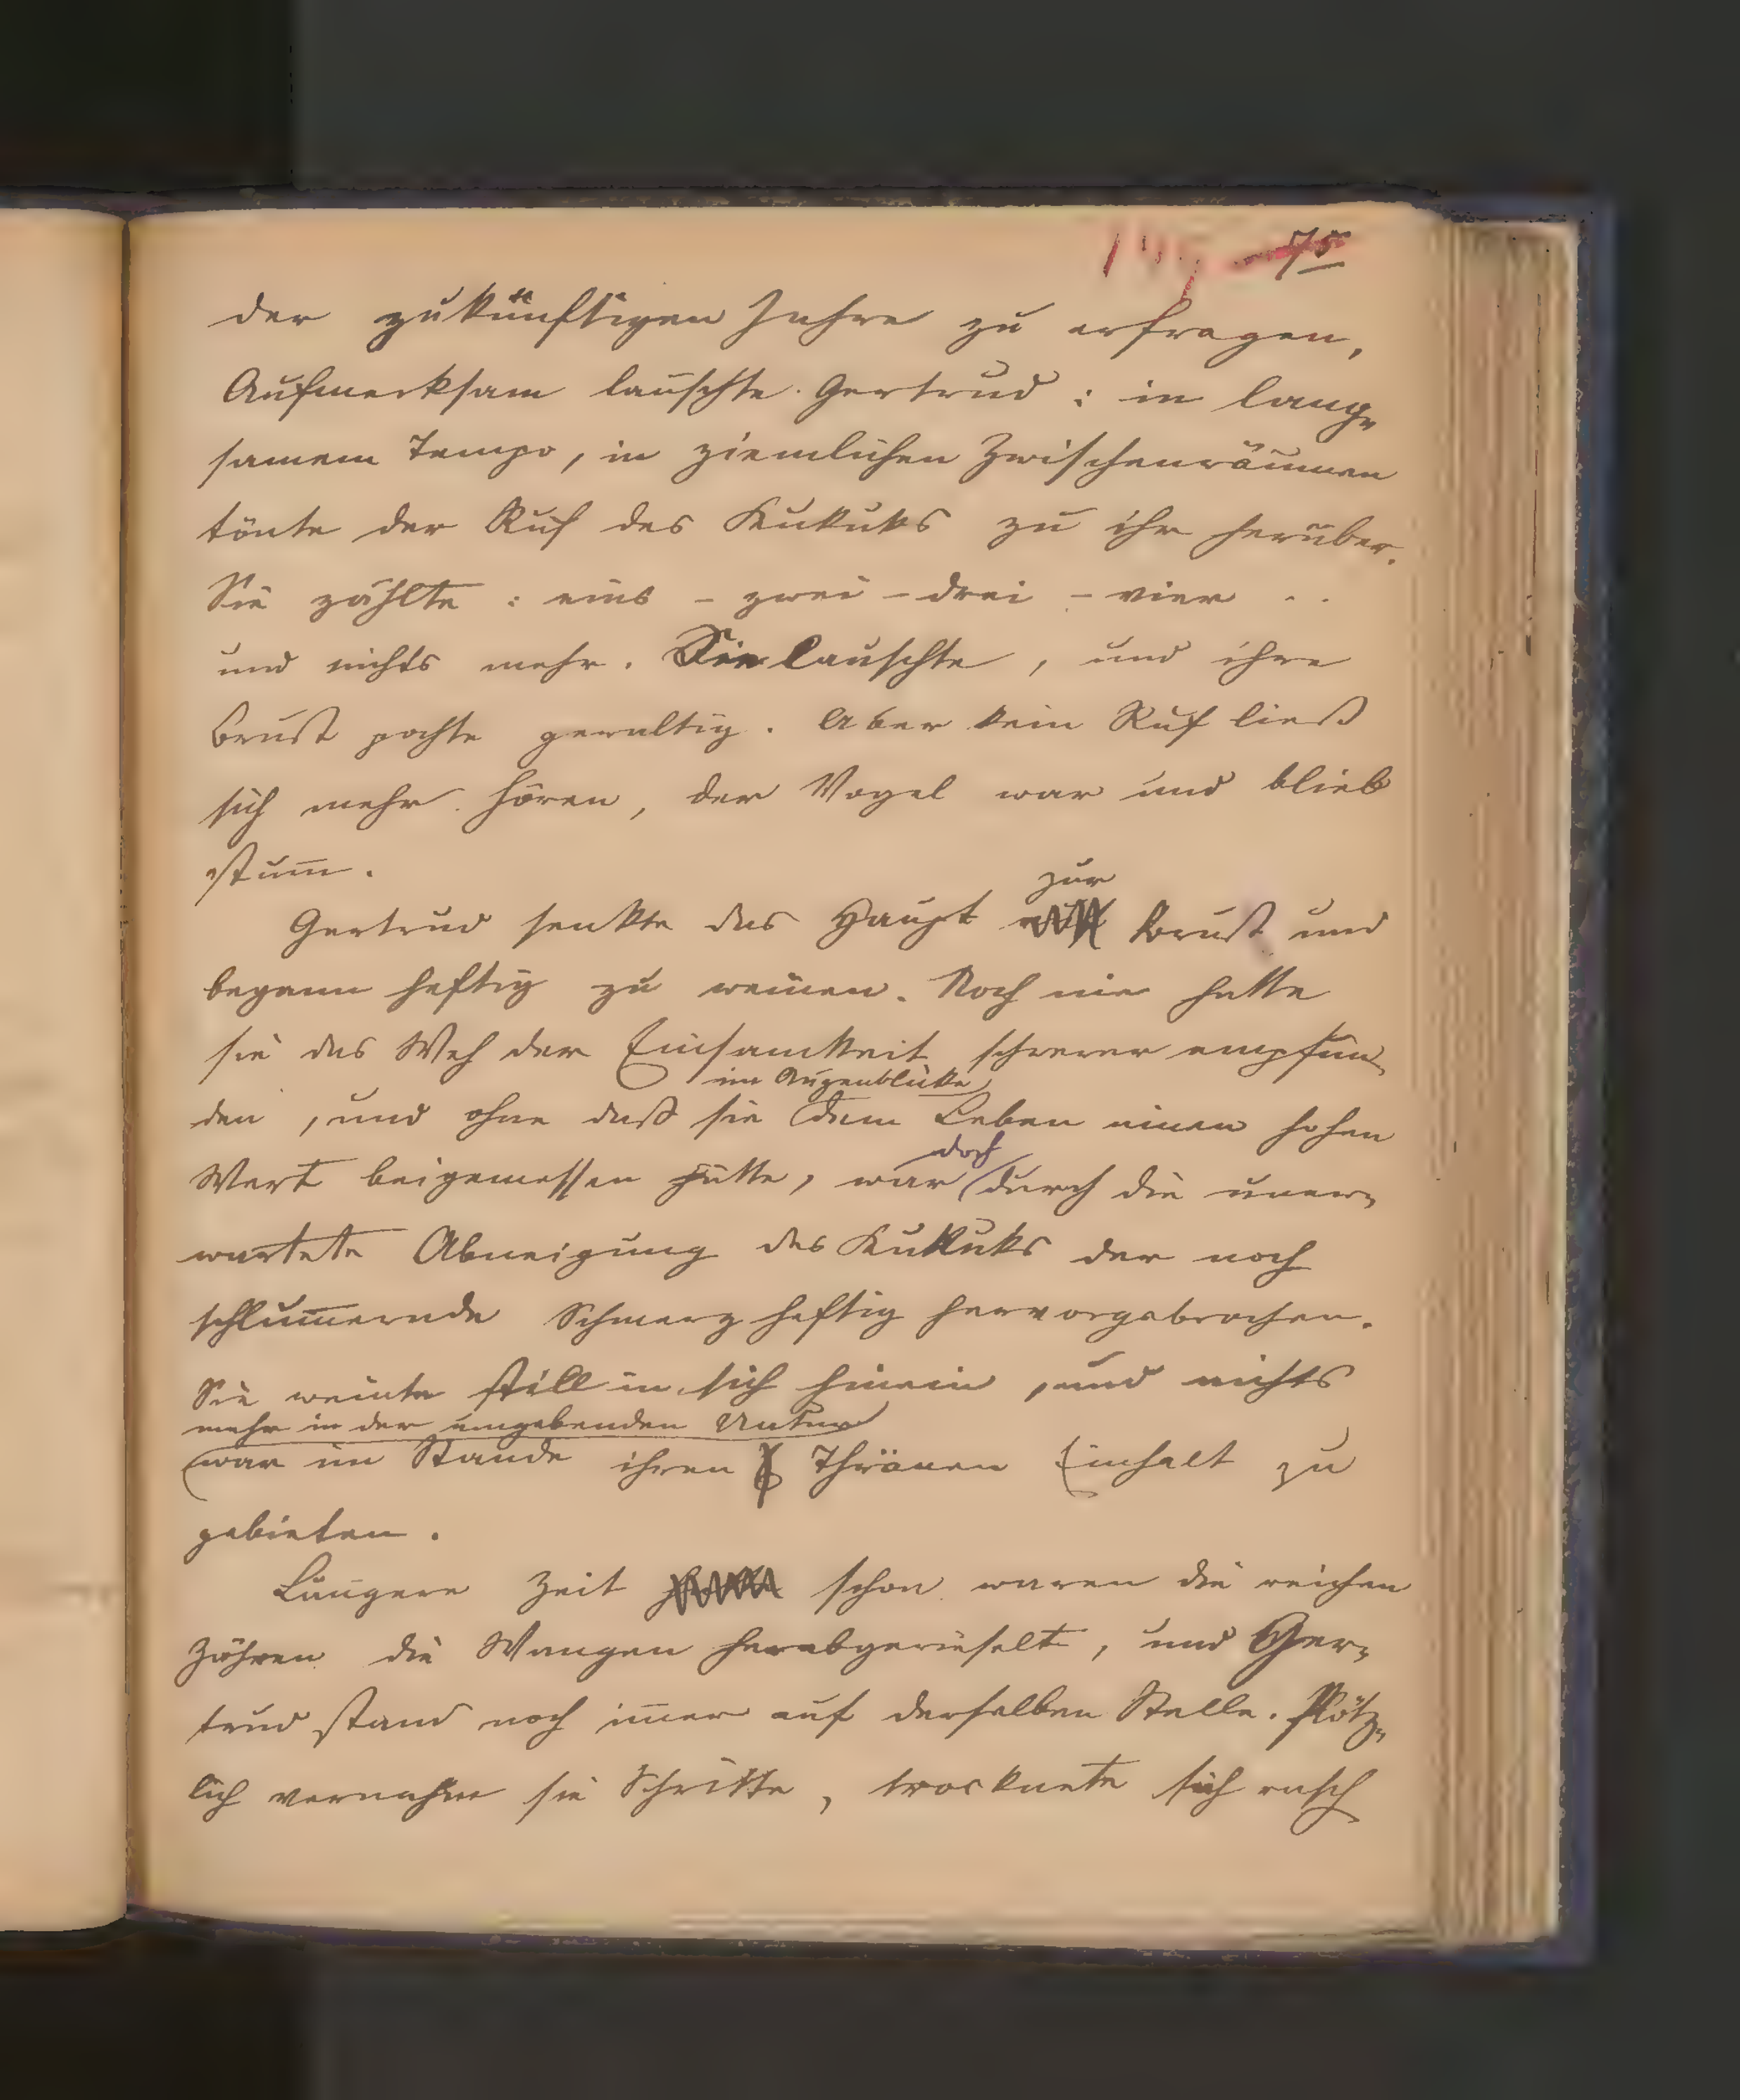 75
der zukünftigen Jahre zu erfragen,
Aufmerksam lauschte Gertrud: in lang-
samem Tempo, in ziemlichen Zwischenräumen
tönte der Ruf des Kukuks zu ihr herüber.
Sie zählte: eins - zwei - drei - vier ..
und nichts mehr. Sie lauschte, und ihre
Brust pochte gewaltig. Aber kein Ruf ließ
sich mehr hören, der Vogel war und blieb
stum̅.
zur
Gertrud senkte das Haupt Brust und
begann heftig zu weinen. Noch nie hatte
sie das Weh der Einsamkeit schwerer empfun-
im Augenblicke
den, und ohne daß sie dem Leben einen hohen
doch
Wert beigemessen hätte, war durch die uner-
wartete Abneigung des Kukuks der noch
schlum̅ernde Schmerz heftig hervorgebrochen.
Sie weinte still in sich hinein, und nichts
mehr in der umgebenden Natur
war im Stande ihren Thränen Einhalt zu
gebieten.
Längere Zeit schon waren die reichen
Zähren die Wangen herabgerieselt, und Ger-
trud stand noch im̅er auf derselben Stelle. Plötz-
lich vernahm sie Schritte, trocknete sich rasch